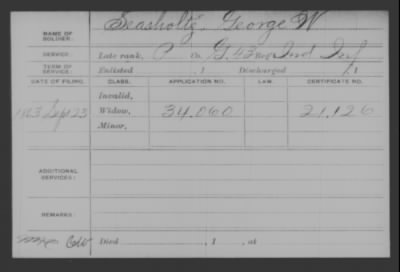 NAME OF SOLDIER: Seasholtz, George W
SERVICE: Late rank, P Co. G, 43 Reg. Ind Inf
TERM OF SERVICE: Enlisted , 1 Discharged , 1
DATE OF FILING. CLASS. APPLICATION NO. LAW. CERTIFICATE NO.
Invalid,
1863 Sep 23 Widow, 34,060 21,126
Minor,
ADDITIONAL SERVICES:
REMARKS:
Died , 1 , at